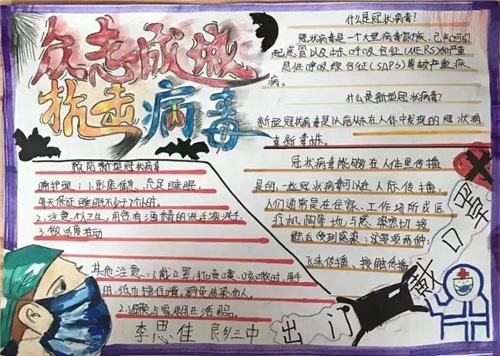 众志成城
抗击病毒
什么是冠状病毒?
冠状病毒是一个大型病毒家族,已知可引
起感冒以及中东呼吸综合征(MERS)和严重
急性呼吸综合征(SARS)等较严重疾
病。
什么是新型冠状病毒?
新型冠状病毒是以前从未在人体中发现的冠状病
毒新毒株。
冠状病毒能够在人体里传播
是的,一些冠状病毒可以在人际传播,
人们通常是在居家、工作场所或医
疗机构等地与感染者密切接
触后受到感染
飞沫传播、接触传播
预防新型冠状病毒
1、卧床休息,充足睡眠,
每天保证睡眠不少于7个小时。
2、注意个人卫生,用含有酒精的洗手液洗手。
3、做适度运动
其他注意:1、戴口罩,打喷嚏、咳嗽时,用手
用纸巾捂住嘴,避免传染他人。
李思佳
三中
出门
戴口罩